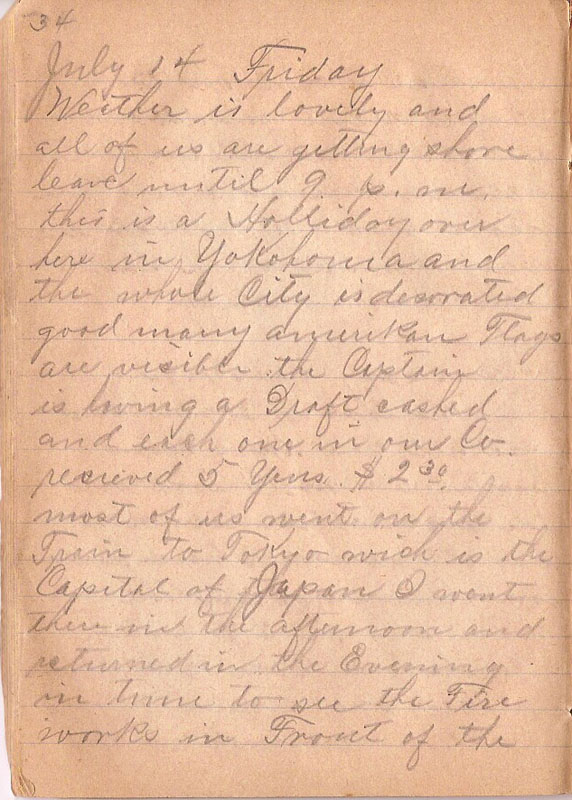 34
July 14 Friday
Weather is lovely and
all of us are getting shore
leave until 9 p.m.
this is a Holliday over
here in Yokohoma and
the whole City is decorated
good many amerikan Flags
are visible the Captain
is having a Draft cashed
and each one in our Co.
recieved 5 Yens. $ 2 30.
most of us went on the
Train to Tokyo wich is the
Capital of Japan I went
there in the afternoon and
returned in the Evening
in time to see the Fire
works in Front of the